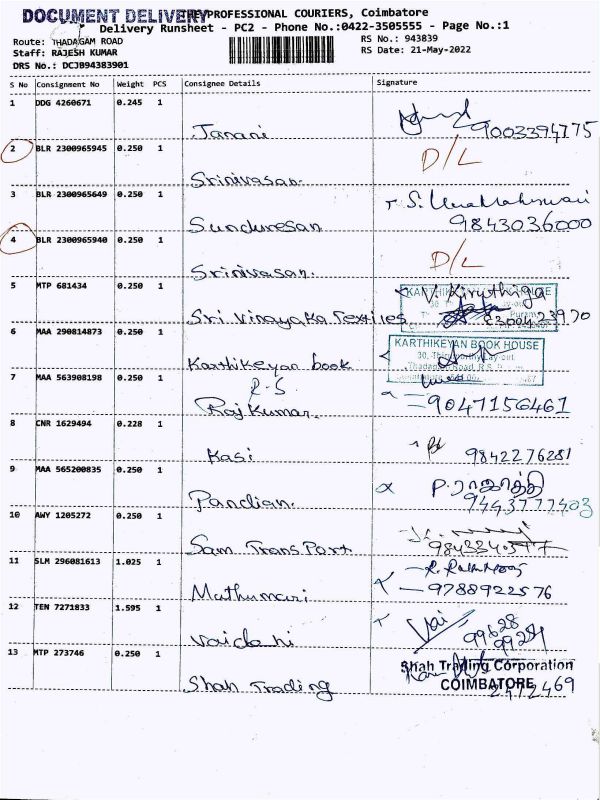 DOCUMENT DELIVERY
THE PROFESSIONAL COURIERS, Coimbatore
Delivery Runsheet - PC2 - Phone No.:0422-3505555 - Page No.:1
Route: THADAGAM ROAD
RS No.: 943839
Staff: RAJESH KUMAR
RS Date: 21-May-2022
DRS No.: DCJB94383901
S No Consignment No Weight PCS Consignee Details Signature
1 DDG 4260671 0.245 1
Janani 9003394775
2 BLR 2300965945 0.250 1 D/L
Srinivasan.
3 BLR 2300965649 0.250 1 S. Uma Maheswari
Sunduresan 9843036000
4 BLR 2300965940 0.250 1 D/L
Srinivasan.
5 MTP 681434 0.250 1 V. Kiruthiga
Sri Vinayaka Textiles
6 MAA 290814873 0.250 1
KARTHIKEYAN BOOK HOUSE
Karthikeyan book
7 MAA 563908198 0.250 1
R-S
Raj Kumar. 9047156461
8 CNR 1629494 0.228 1
Kasi 9842276281
9 MAA 565200835 0.250 1 P. ராஜாத்தி
Pandian. 9443777403
10 AWY 1205272 0.250 1
Sam Trans Port
11 SLM 296081613 1.025 1
Muthumari 9788922576
12 TEN 7271833 1.595 1
Vaidahi
13 MTP 273746 0.250 1
Shah Trading Corporation
Shah Trading COIMBATORE
2472469